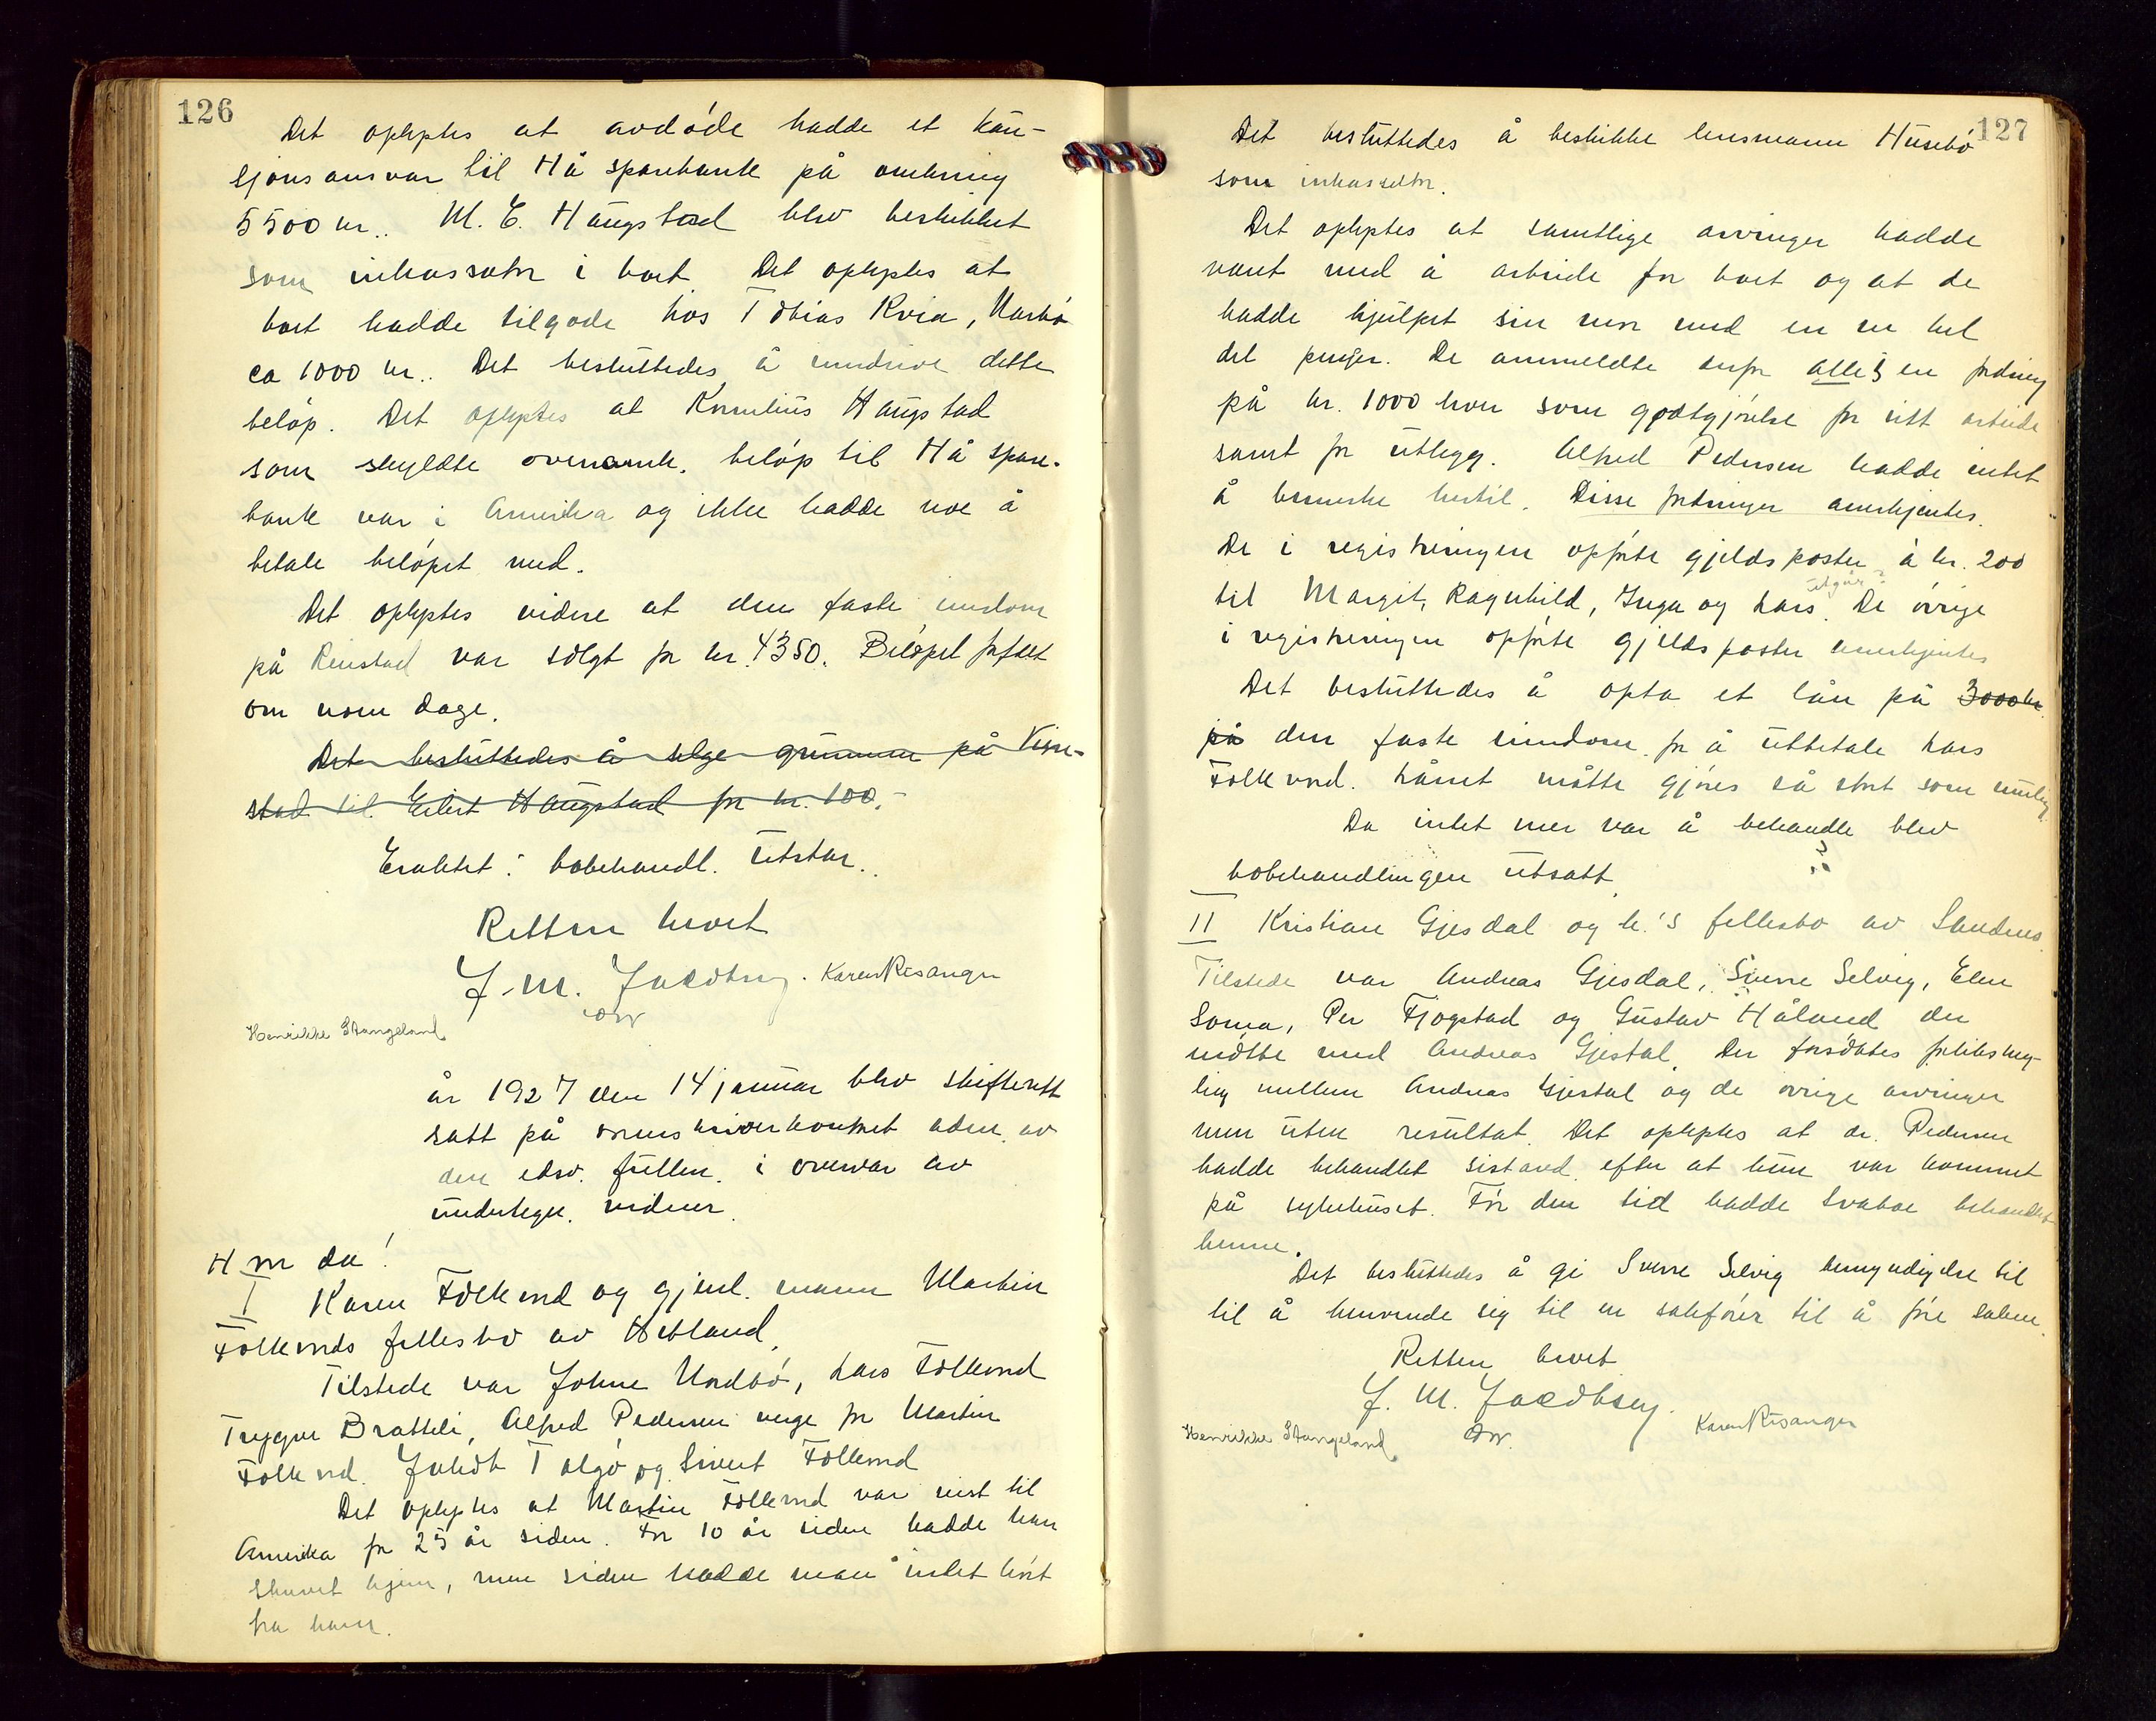 126
Det oplystes at avdøde hadde et kau-
sjonsansvar til Hå sparebank på omkring
5500 kr.. M. E. Haugstad blev beskikket
som inkassator i boet. Det oplystes at
boet hadde tilgode hos Tobias Kvia, Nærbø
ca 1000 kr.. Det besluttedes å inndrive dette
beløp. Det oplystes at Kornelius Haugstad
som skyldte ovennevnte. beløp til Hå spare-
bank var i Amerika og ikke hadde noe å
betale beløpet med.
Det oplystes videre at den faste eiendom
på Reustad var solgt for kr. 4350. Beløpet forfalt
om noen dage.
Det besluttedes å selge grunnen på
stad til Eilert Haugstad for kr. 100.-
Eraktet: bobehandl. utstår.
Retten hevet
J. M. Jacobsen. Karen Risanger
Henrikke Stangeland
år 1927 den 14 januar blev skifterett
satt på sorenskriverkontoret adm. av
den edsv. fullm. i overvær av
undertegn. vidner.
Hm da!
I Karen Folkvord og gjenl. mann Martin
Folkvords fellesbo av Hetland.
Tilstede var Johne Nordbø, Lars Folkvord
Trygve Bratteli, Alfred Pedersen verge for Martin
Folkvord. Jakob Talgø og Sivert Folkvord
Det oplystes at Martin Folkvord var reist til
Amerika for 25 år siden. For 10 år siden hadde han
skrevet hjem, men siden hadde man intet hørt
fra ham.
127
Det besluttedes å beskikke lensmann Husebø
som inkassator.
Det oplystes at samtlige arvinger hadde
vært med å arbeide for boet og at de
hadde hjulpet sin mor med en hel
del penger. De anmeldte derfor alle 5 en fordring
på kr. 1000 hver som godtgjørelse for sitt arbeide
samt for utlegg. Alfred Pedersen hadde intet
å bemerke hertil. Disse fordringer anerkjentes.
De i registreringen opførte gjeldsposter à kr. 200
til Margit, Ragnhild, Inga og Lars utgår. De øvrige
i registreringen opførte gjeldsposter anerkjentes
Det besluttedes å opta et lån på 3000 kr.
på den faste eiendom for å utbetale Lars
Folkvord. Lånet måtte gjøres så stort som mulig.
Da intet mer var å behandle blev
bobehandlingen utsatt.
II Kristian Gjesdal og h.'s fellesbo av Sandnes.
Tilstede var Andreas Gjesdal, Sverre Selvig, Elen
Soma, Per Fjogstad og Gustav Håland der
møtte med Andreas Gjesdal. Der forsøktes forliksmeg-
ling mellem Andreas Gjesdal og de øvrige arvinger
men uten resultat. Det oplystes at dr. Pedersen
hadde behandlet sistavd. efter at hun var kommet
på sykehuset. Før den tid hadde Svaboe behandlet
henne.
Det besluttedes å gi Sverre Selvig bemyndigelse til
til å henvende sig til en sakfører til å føre saken.
Retten hevet
J. M. Jacobsen.
Henrikke Stangeland Karen Risanger